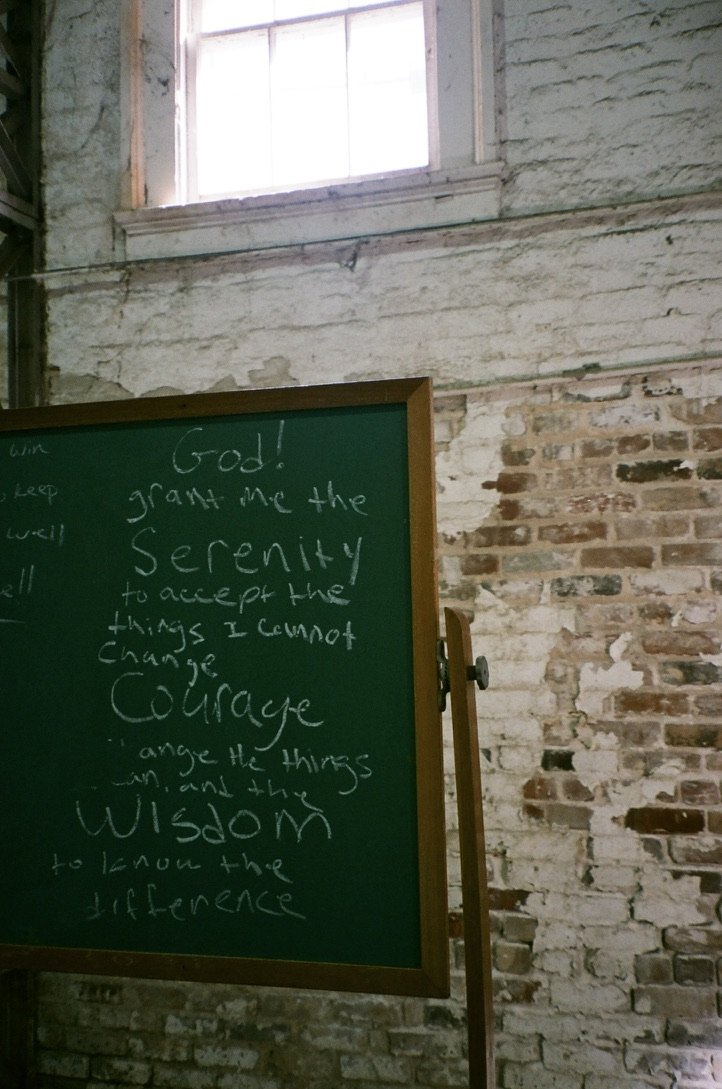 win
keep
well
ell
God!
grant me the
Serenity
to accept the
things I cannot
change
Courage
ange the things
an. and the
Wisdom
to know the
difference